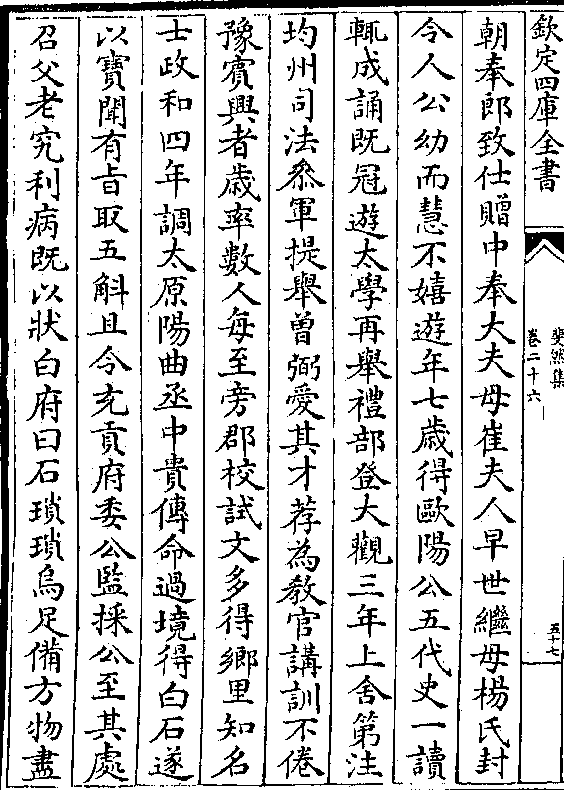 欽定四庫全書
斐然集
卷二十六
五十七
朝奉郎致仕贈中奉大夫母崔夫人早世繼母楊氏封
令人公幼而慧不嬉遊年七歳得歐陽公五代史一讀
輒成誦既冠遊太學再舉禮部登大觀三年上舍第注
均州司法叅軍提舉曽弼愛其才荐為教官講訓不倦
豫賔興者歲率數人每至旁郡校試文多得鄉里知名
士政和四年調太原陽曲丞中貴傳命過境得白石遂
以寶聞有旨取五斛且令充貢府委公監採公至其處
召父老究利病既以狀白府曰石瑣瑣烏足備方物盡